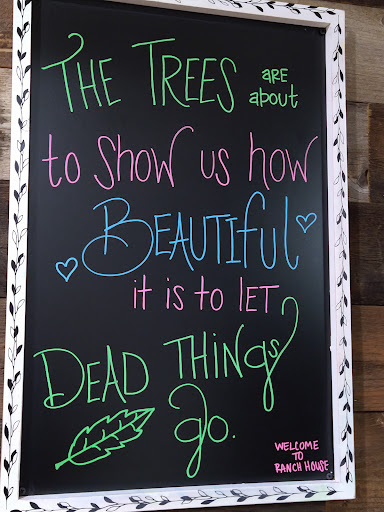 THE TREES ARE about
to Show us how
BEAUTIFul
it is to lET
DEAD THINgs
go.
WELCOME
TO
RANCH HOUSE